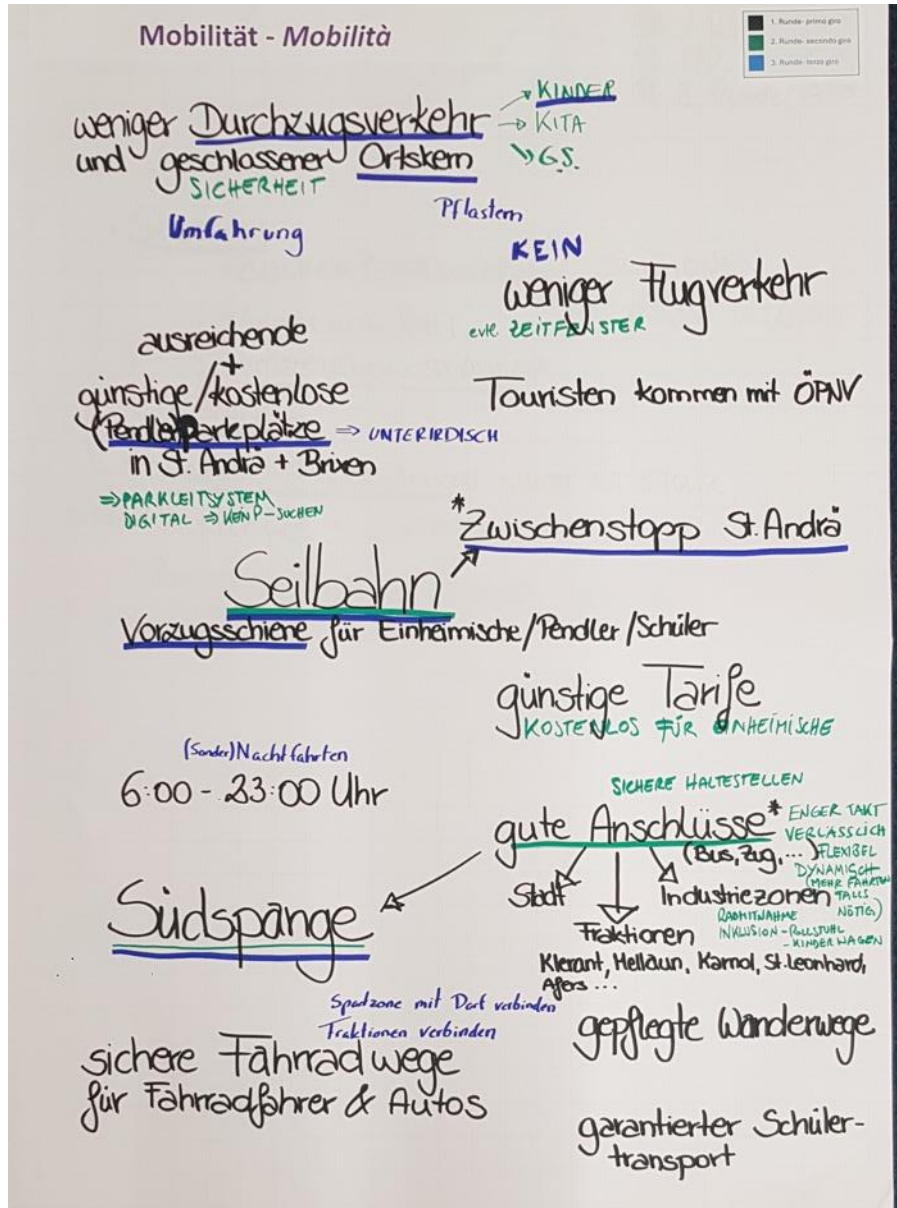 Mobilität - Mobilità
1. Runde- primo giro
2. Runde- secondo giro
3. Runde- terzo giro
weniger Durchzugsverkehr
und geschlossener Ortskern
→ KINDER
→ KITA
→ G.S.
SICHERHEIT
Umfahrung
Pflastern
KEIN
weniger Flugverkehr
evtl. ZEITFENSTER
ausreichende
+
günstige/kostenlose
(Pendler)parkplätze ⇒ UNTERIRDISCH
in St. Andrä + Brixen
⇒ PARKLEITSYSTEM
DIGITAL ⇒ KEIN P-SUCHEN
Touristen kommen mit ÖPNV
*Zwischenstopp St. Andrä
Seilbahn
Vorzugsschiene für Einheimische/Pendler/Schüler
günstige Tarife
KOSTENLOS FÜR EINHEIMISCHE
(Sonder)Nachtfahrten
6:00 - 23:00 Uhr
SICHERE HALTESTELLEN
gute Anschlüsse*
(Bus, Zug, ...)
ENGER TAKT
VERLÄSSLICH
FLEXIBEL
DYNAMISCH
(MEHR FAHRTEN
FALLS
NÖTIG)
Stadt
Industriezonen
Fraktionen
RADMITNAHME
INKLUSION - ROLLSTUHL
- KINDERWAGEN
Klerant, Mellaun, Karnol, St. Leonhard,
Afers ...
Südspange
Sportzone mit Dorf verbinden
Fraktionen verbinden
sichere Fahrradwege
für Fahrradfahrer & Autos
gepflegte Wanderwege
garantierter Schüler-
transport